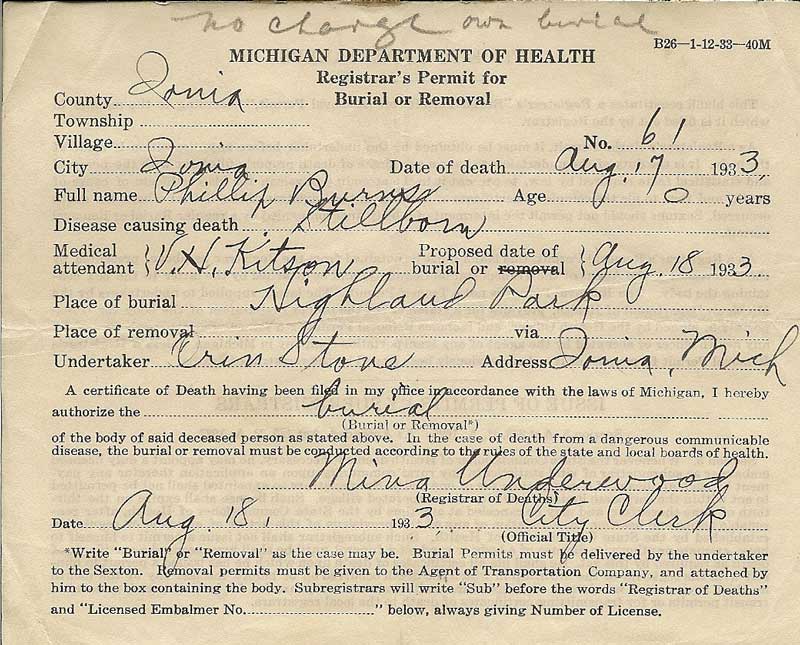 no charge own burial
B26—1-12-33—40M
MICHIGAN DEPARTMENT OF HEALTH
Registrar's Permit for
Burial or Removal
County Ionia
Township
Village
No. 61
City Ionia Date of death Aug. 17 1933,
Full name Phillip Burns Age 0 years
Disease causing death Stillborn
Medical attendant } V. H. Kitson Proposed date of burial or removal } Aug. 18 1933
Place of burial Highland Park
Place of removal via
Undertaker Orin Stone Address Ionia, Mich
A certificate of Death having been filed in my office in accordance with the laws of Michigan, I hereby
authorize the burial
(Burial or Removal*)
of the body of said deceased person as stated above. In the case of death from a dangerous communicable
disease, the burial or removal must be conducted according to the rules of the state and local boards of health.
Mina Underwood
(Registrar of Deaths)
Date Aug. 18, 1933. City Clerk
(Official Title)
*Write "Burial" or "Removal" as the case may be. Burial Permits must be delivered by the undertaker
to the Sexton. Removal permits must be given to the Agent of Transportation Company, and attached by
him to the box containing the body. Subregistrars will write "Sub" before the words "Registrar of Deaths"
and "Licensed Embalmer No. " below, always giving Number of License.